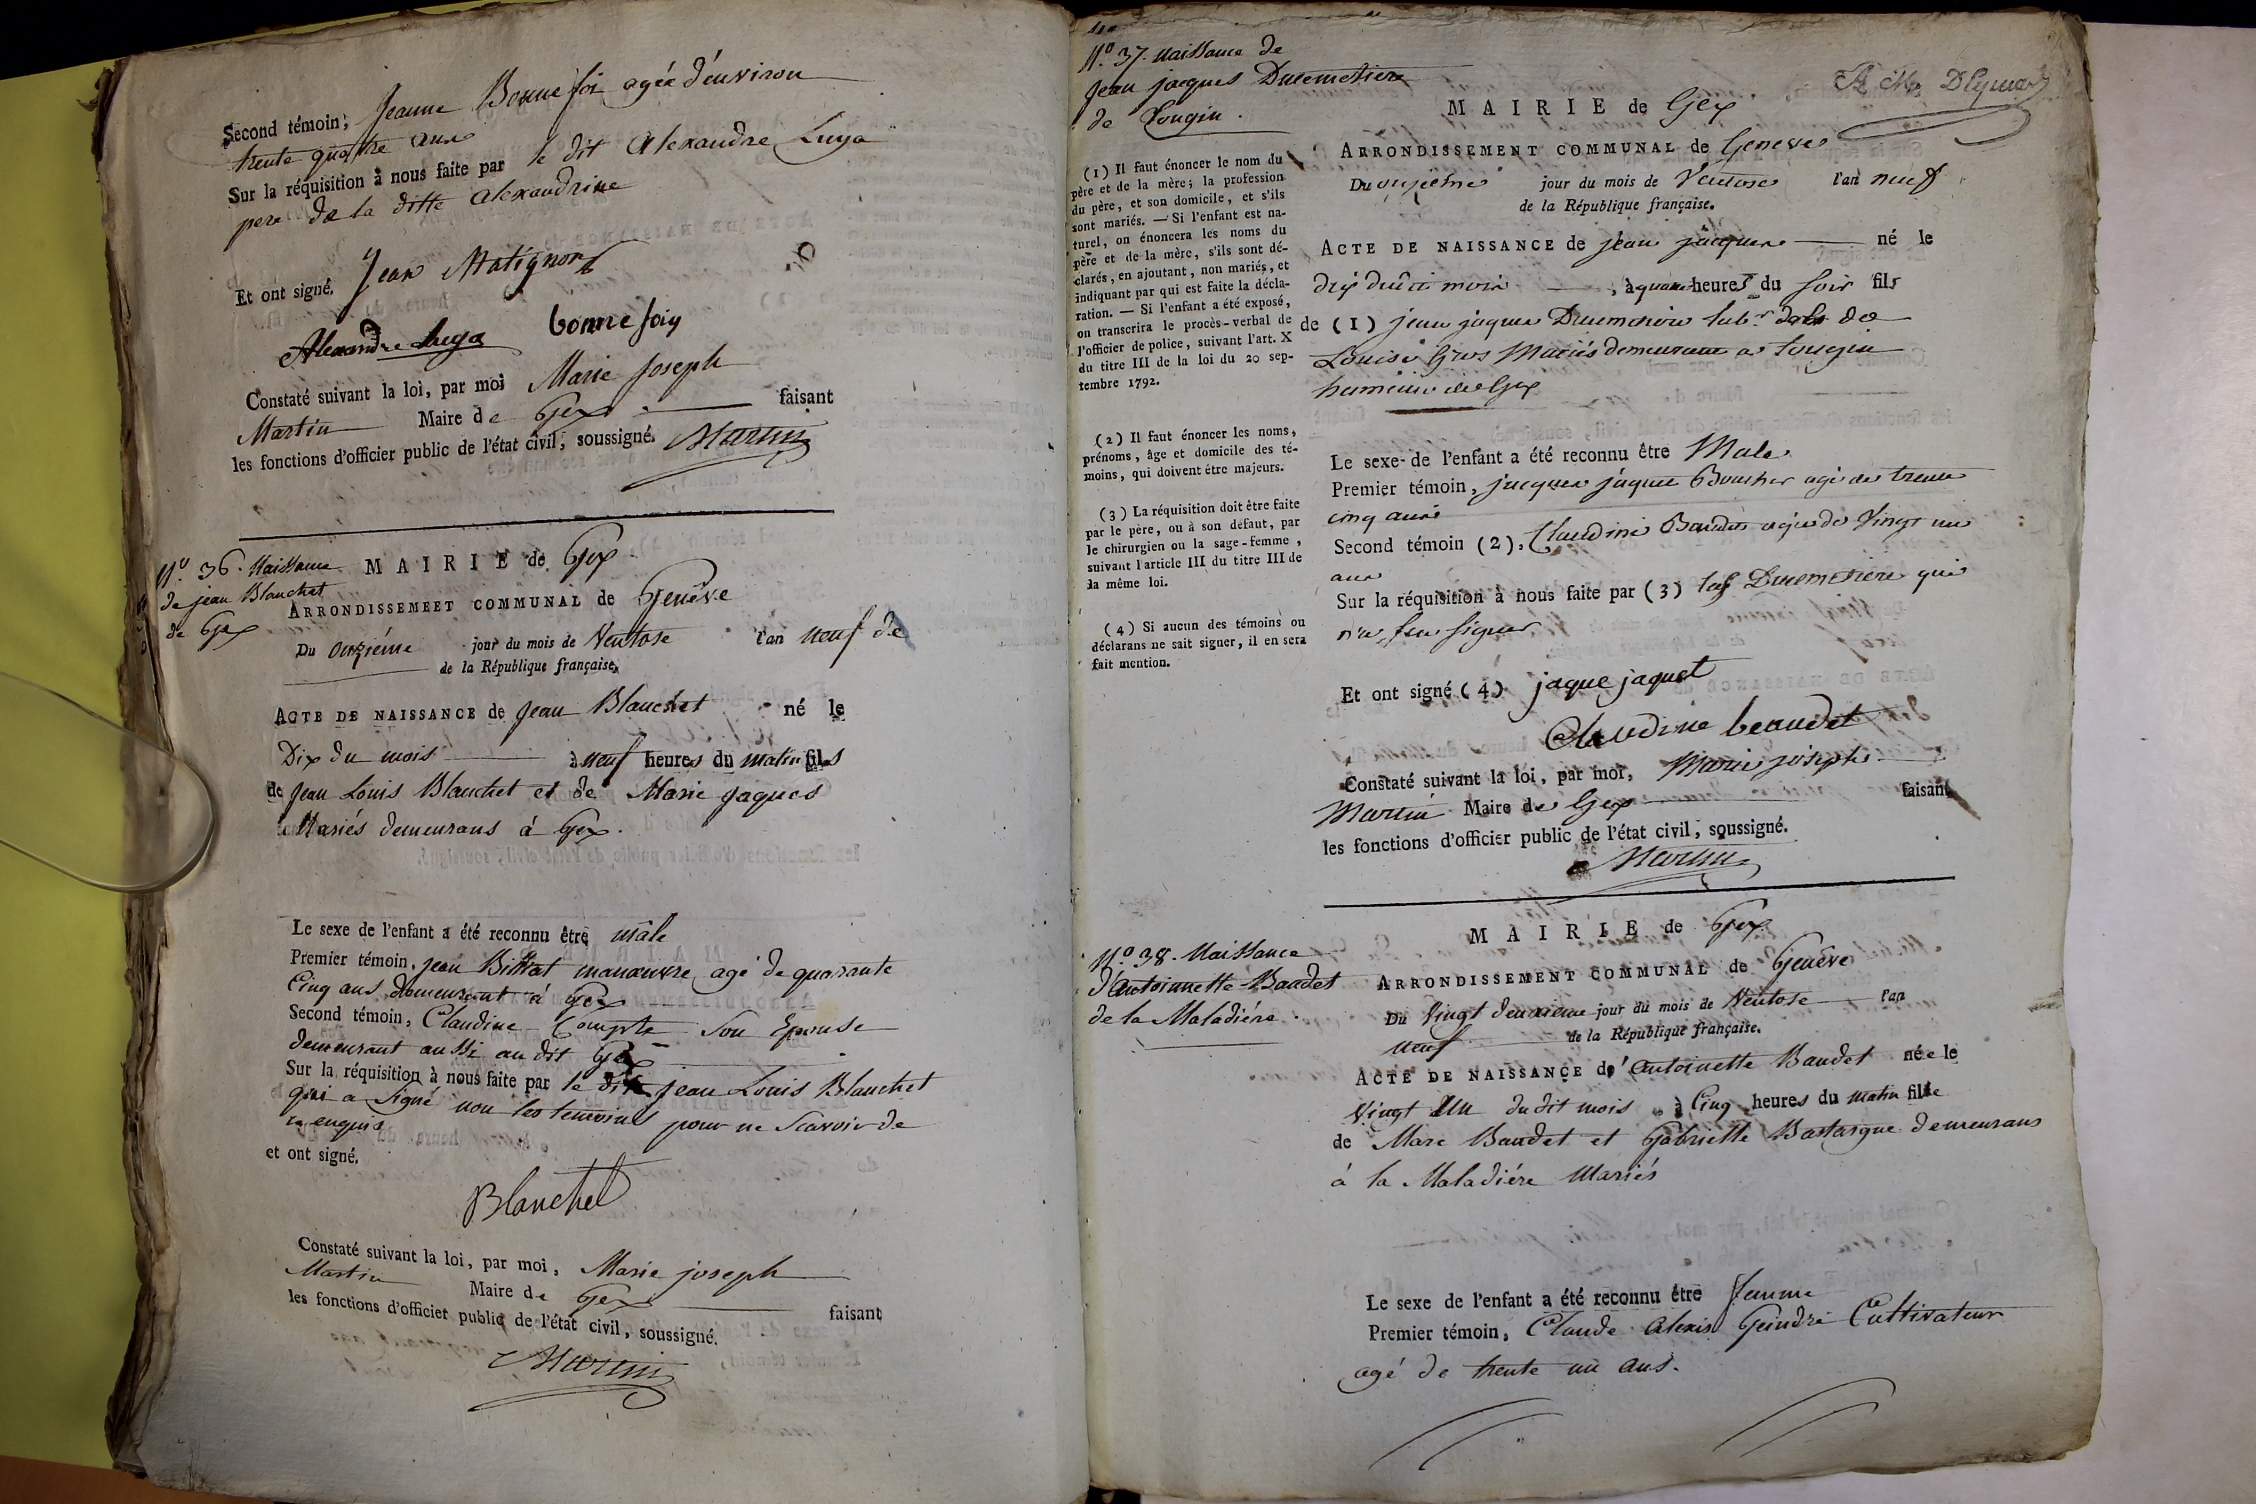 Second témoin, Jeanne Bonnefoi agée d'environ
trente quatre ans
Sur la réquisition à nous faite par le dit Alexandre Luga
pere de la ditte alexandrine
Et ont signé. Jean Matignon
Alexandre Luga bonnefoiy
Constaté suivant la loi, par moi Marie Joseph
Martin Maire de Gex faisant
les fonctions d'officier public de l'état civil, soussigné. Martin
N.º 36. Naissance
de jean Blanchet
de Gex
MAIRIE de Gex
ARRONDISSEMEET COMMUNAL de Genêve
Du onziéme jour du mois de Ventose l'an neuf de
de la République française.
ACTE DE NAISSANCE de Jean Blanchet né le
Dix du mois à neuf heures du matin fils
de Jean Louis Blanchet et de Marie Jaques
Mariés demeurans á Gex.
Le sexe de l'enfant a été reconnu être mâle
Premier témoin, jean manœuvre agé de quarante
Cinq ans demeurant á Gex
Second témoin, Claudine Compte son Epouse
demeurant aussi au dit Gex
Sur la réquisition à nous faite par le dit jean Louis Blanchet
qui a signé non les temoins pour ne scavoir de
ce enquis
et ont signé.
Blanchet
Constaté suivant la loi, par moi, Marie joseph
Martin Maire de Gex faisant
les fonctions d'officier public de l'état civil, soussigné.
Martin
N.º 37. Naissance de
Jean jacques Duremetiere
de Tougin.
MAIRIE de Gex
ARRONDISSEMENT COMMUNAL de Geneve
Du onzieme jour du mois de Ventose l'an neuf
de la République française.
ACTE DE NAISSANCE de jean jacques né le
dix dudit mois, à quatre heures du soir fils
de (1) jean jaques Duremetiere lab.r de
Louise Gros Mariés demeurant a tougin
hameau de Gex
(1) Il faut énoncer le nom du
père et de la mère; la profession
du père, et son domicile, et s'ils
sont mariés. — Si l'enfant est na-
turel, on énoncera les noms du
père et de la mère, s'ils sont dé-
clarés, en ajoutant, non mariés, et
indiquant par qui est faite la décla-
ration. — Si l'enfant a été exposé,
on transcrira le procès-verbal de
l'officier de police, suivant l'art. X
du titre III de la loi du 20 sep-
tembre 1792.
(2) Il faut énoncer les noms,
prénoms, âge et domicile des té-
moins, qui doivent être majeurs.
(3) La réquisition doit être faite
par le père, ou à son défaut, par
le chirurgien ou la sage-femme,
suivant l'article III du titre III de
la même loi.
(4) Si aucun des témoins ou
déclarans ne sait signer, il en sera
fait mention.
Le sexe de l'enfant a été reconnu être Male
Premier témoin, jacques jaquet Boucher agé de trente
cinq ans
Second témoin (2), Claudine Baudet agée de Vingt un
ans
Sur la réquisition à nous faite par (3) Duremetiere qui
n'a seu signer
Et ont signé (4) jaque jaquet
Claudine beaudet
Constaté suivant la loi, par moi, Marie joseph
Martin Maire de Gex faisant
les fonctions d'officier public de l'état civil, soussigné.
Martin
N.º 38. Naissance
d'Antoinette Baudet
de la Maladiére.
MAIRIE de Gex
ARRONDISSEMENT COMMUNAL de Genêve
Du Vingt deuxieme jour du mois de Ventose l'an
neuf de la République française.
ACTE DE NAISSANCE d'antoinette Baudet née le
Vingt un du dit mois à Cinq heures du matin fille
de Marc Baudet et Gabrielle Bastasque demeurans
á la Maladiére Mariés
Le sexe de l'enfant a été reconnu être femme
Premier témoin, Claude Alexis Geindre Cultivateur
agé de trente un ans.